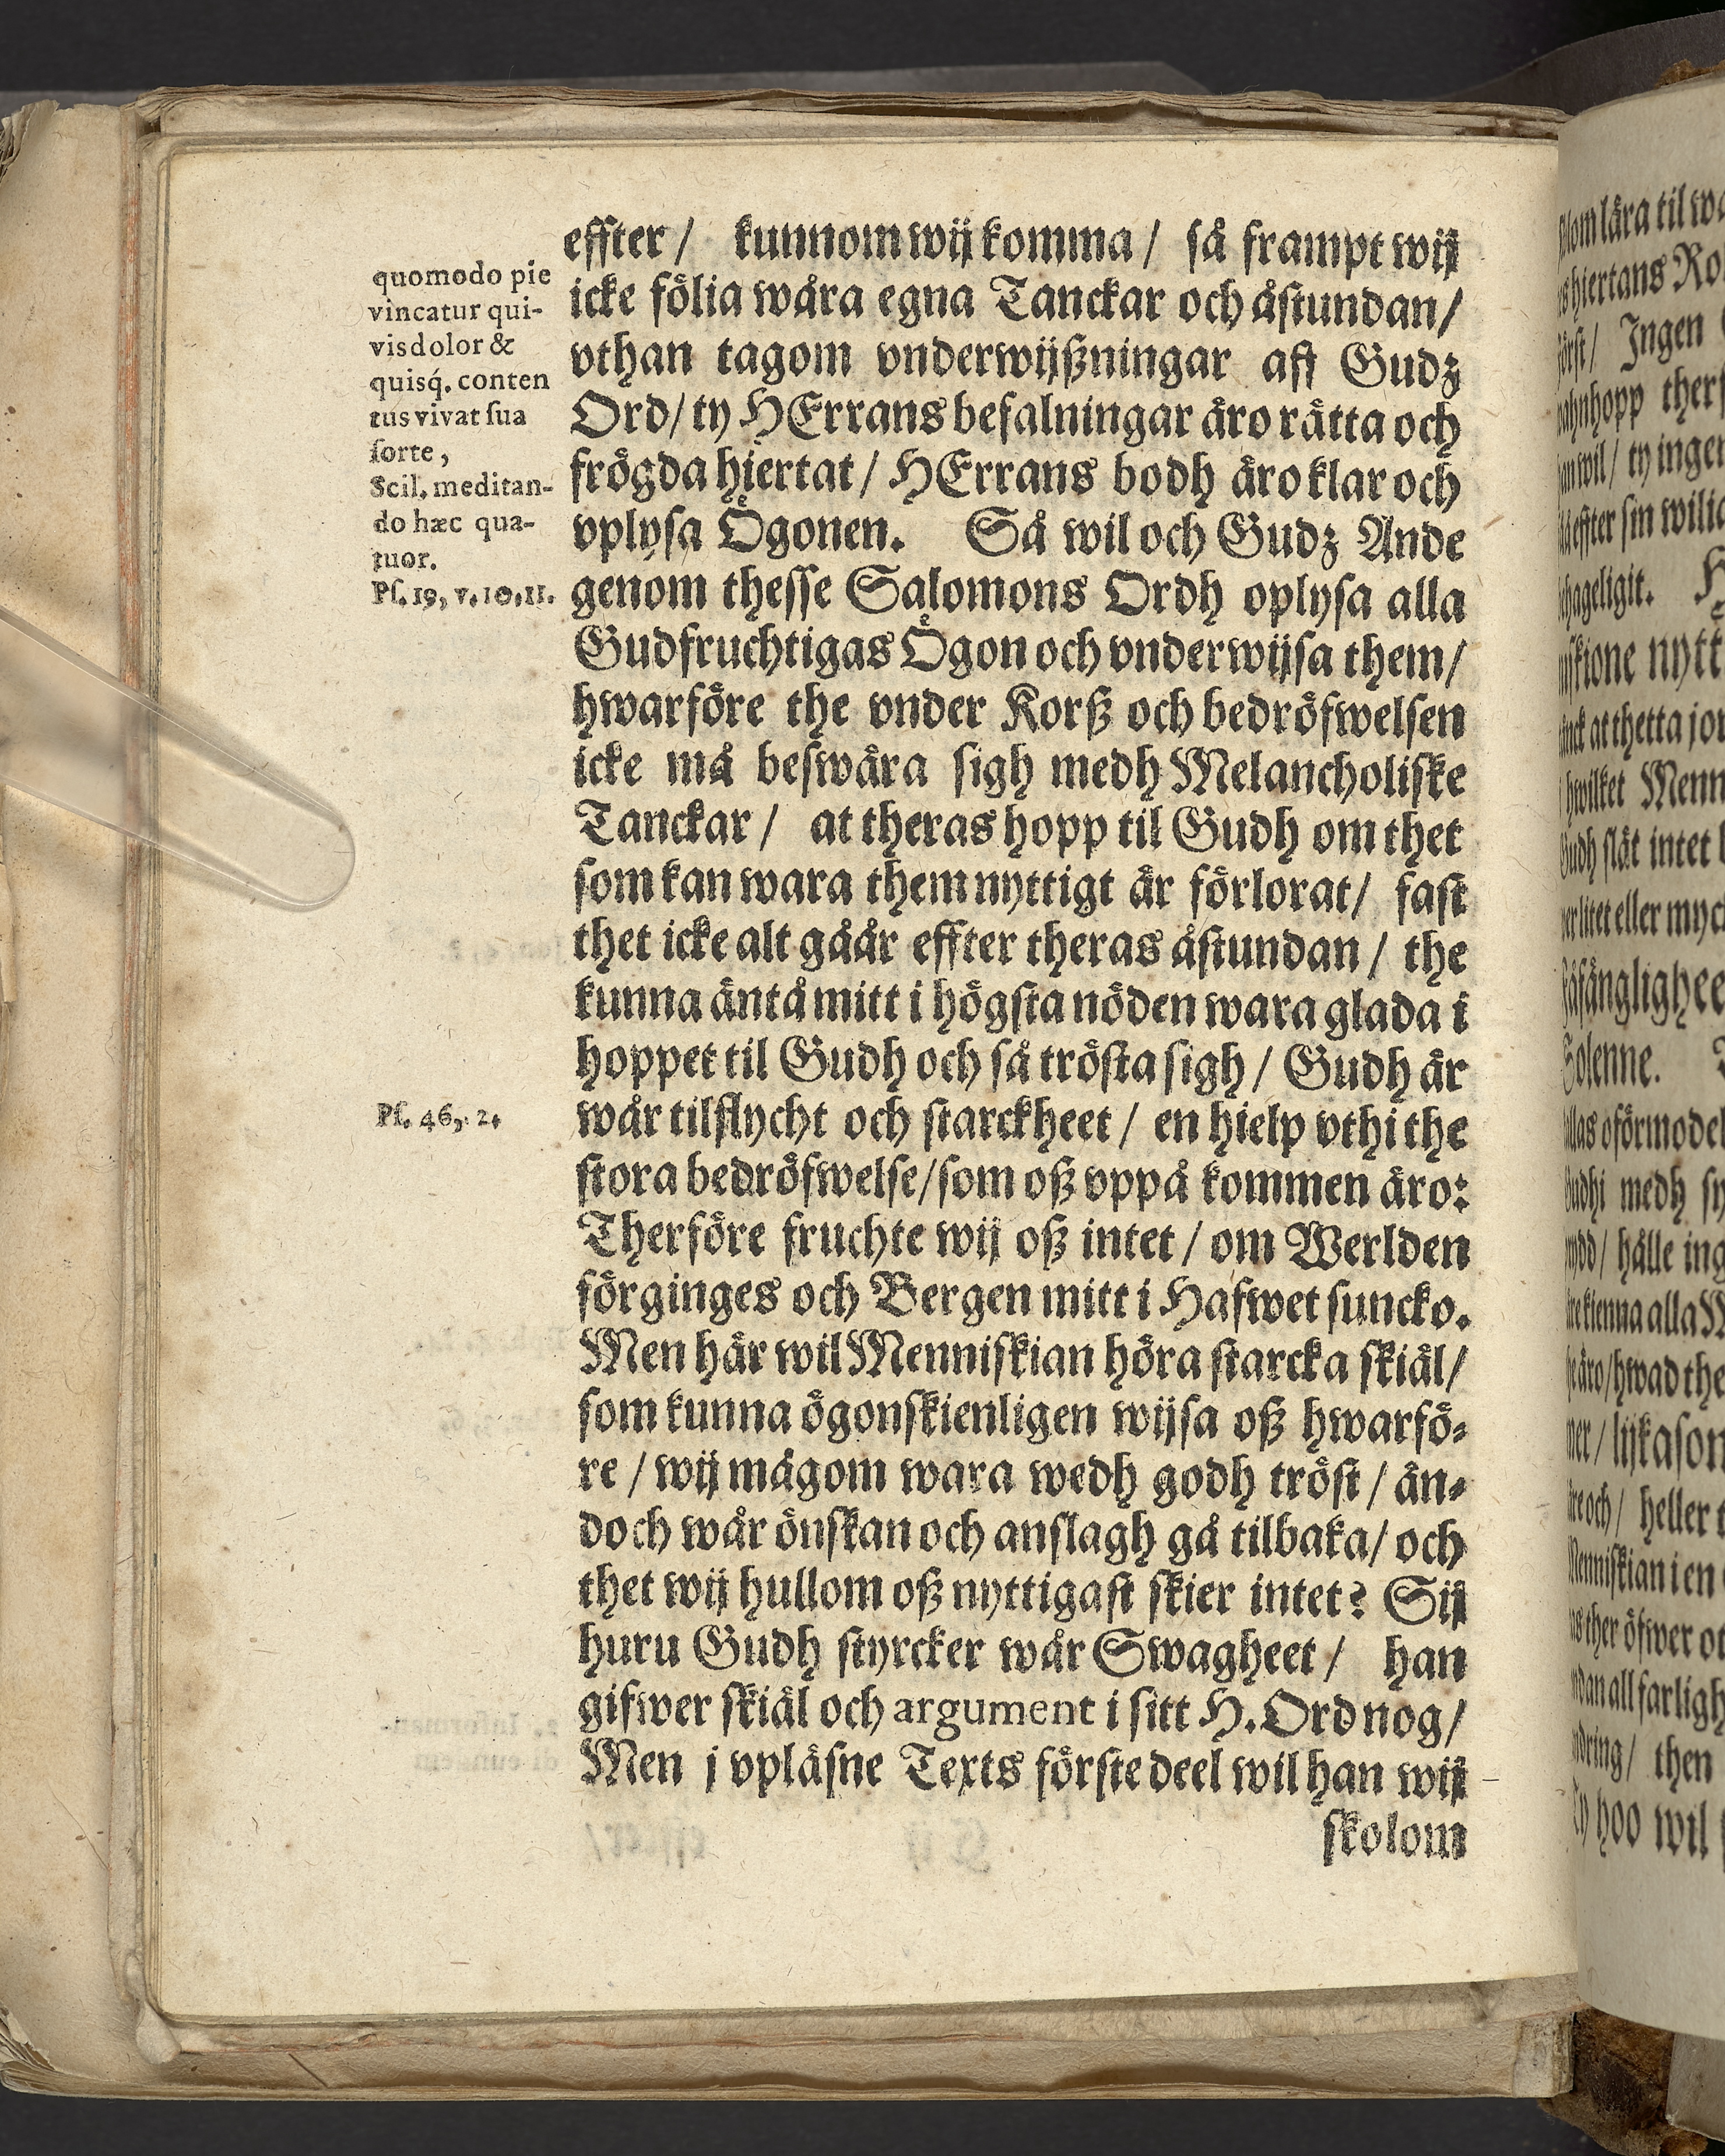 quomodo pie
vincatur qui-
vis dolor &
quisq́. conten
tus vivat ſua
ſorte,
Scil. meditan-
do hæc qua-
tuor.
Pſ. 19, v. 10. 11.
Pſ. 46, 2.
effter / kunnom wij komma / så frampt wij
icke fölia wåra egna Tanckar och åſtundan /
vthan tagom vnderwijßningar aff Gudz
Ord / ty HErrans befalningar äro rätta och
frögda hiertat / HErrans bodh äro klar och
vplyſa Ögonen. Så wil och Gudz Ande
genom theſſe Salomons Ordh oplyſa alla
Gudfruchtigas Ögon och vnderwijſa them /
hwarföre the vnder Korß och bedröfwelſen
icke må beſwåra ſigh medh Melancholiſke
Tanckar / at theras hopp til Gudh om thet
ſom kan wara them nyttigt är förlorat / faſt
thet icke alt gåår effter theras åſtundan / the
kunna äntå mitt i högſta nöden wara glada i
hoppet til Gudh och ſå tröſta ſigh / Gudh är
wår tilflycht och ſtarckheet / en hielp vthi the
ſtora bedröfwelſe / ſom oß vppå kommen äro:
Therföre fruchte wij oß intet / om Werlden
förginges och Bergen mitt i Hafwet ſuncko.
Men här wil Menniſkian höra ſtarcka ſkiäl /
ſom kunna ögonſkienligen wijſa oß hwarfö-
re / wij mågom wara wedh godh tröſt / än-
doch wår önſkan och anſlagh gå tilbaka / och
thet wij hullom oß nyttigaſt ſkier intet? Sij
huru Gudh ſtyrcker wår Swagheet / han
gifwer ſkiäl och argument i ſitt H. Ord nog /
Men j vpläſne Texts förſte deel wil han wij
ſkolom